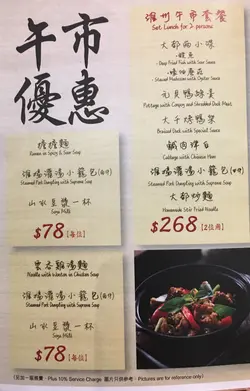 午市
優惠
擔擔麵
Ramen in Spicy & Sour Soup
淮揚灌湯小籠包(四件)
Steamed Pork Dumpling with Supreme Soup
山水豆漿一杯
Soya Milk
$78【每位】
雲吞雞湯麵
Noodle with Wonton in Chicken Soup
淮揚灌湯小籠包(四件)
Steamed Pork Dumpling with Supreme Soup
山水豆漿一杯
Soya Milk
$78【每位】
淮州午市套餐
Set Lunch for 2 persons
大都兩小碟
Deep Fried Fish with Sour Sauce
Stewed Mushroom with Oyster Sauce
元貝鴨絲羹
Pottage with Conpoy and Shredded Duck Meat
大千烤鴨
Braised Duck with Special Sauce
鹹肉津白
Cabbage with Chinese Ham
淮揚灌湯小籠包(四件)
Steamed Pork Dumpling with Supreme Soup
大都炒麵
Homemade Stir Fried Noodle
$268【2位用】
(另加一服務費，Plus 10% Service Charge 圖片只供參考，Pictures are for reference only)